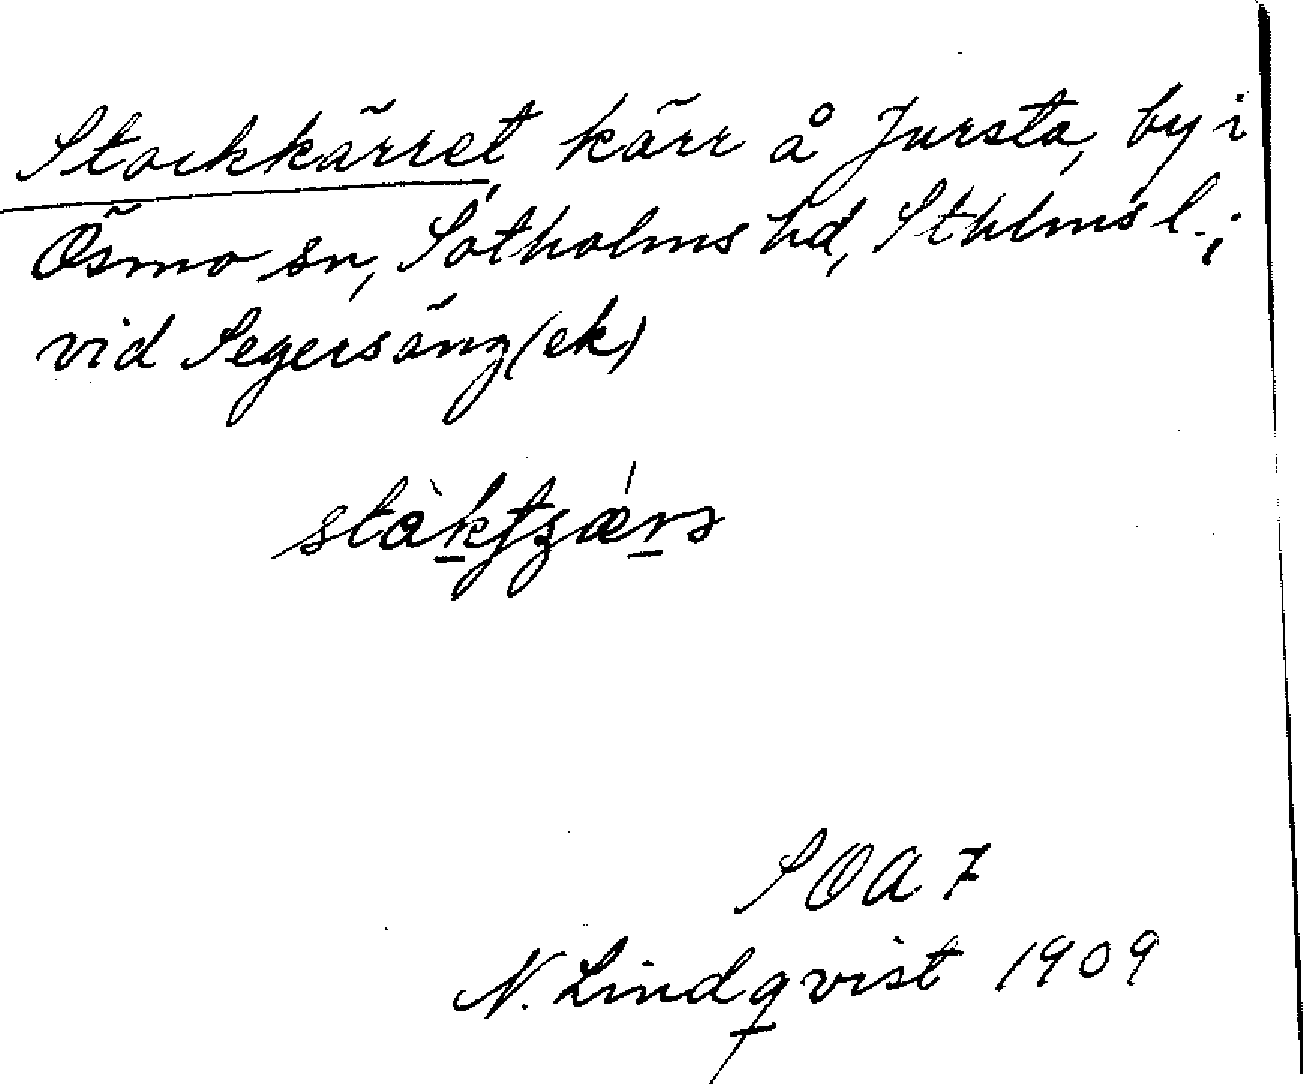 Stockkärret, kärr å Jursta, by i
Ösmo sn, Sotholms hd, Sthlms l.;
vid Segersäng (ek)
SOA 7
N. Lindqvist 1909